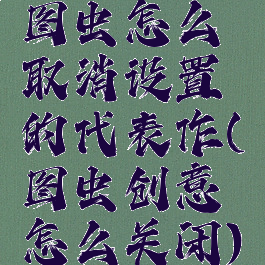 图虫怎么
取消设置
的代表作(
图虫创意
怎么关闭)